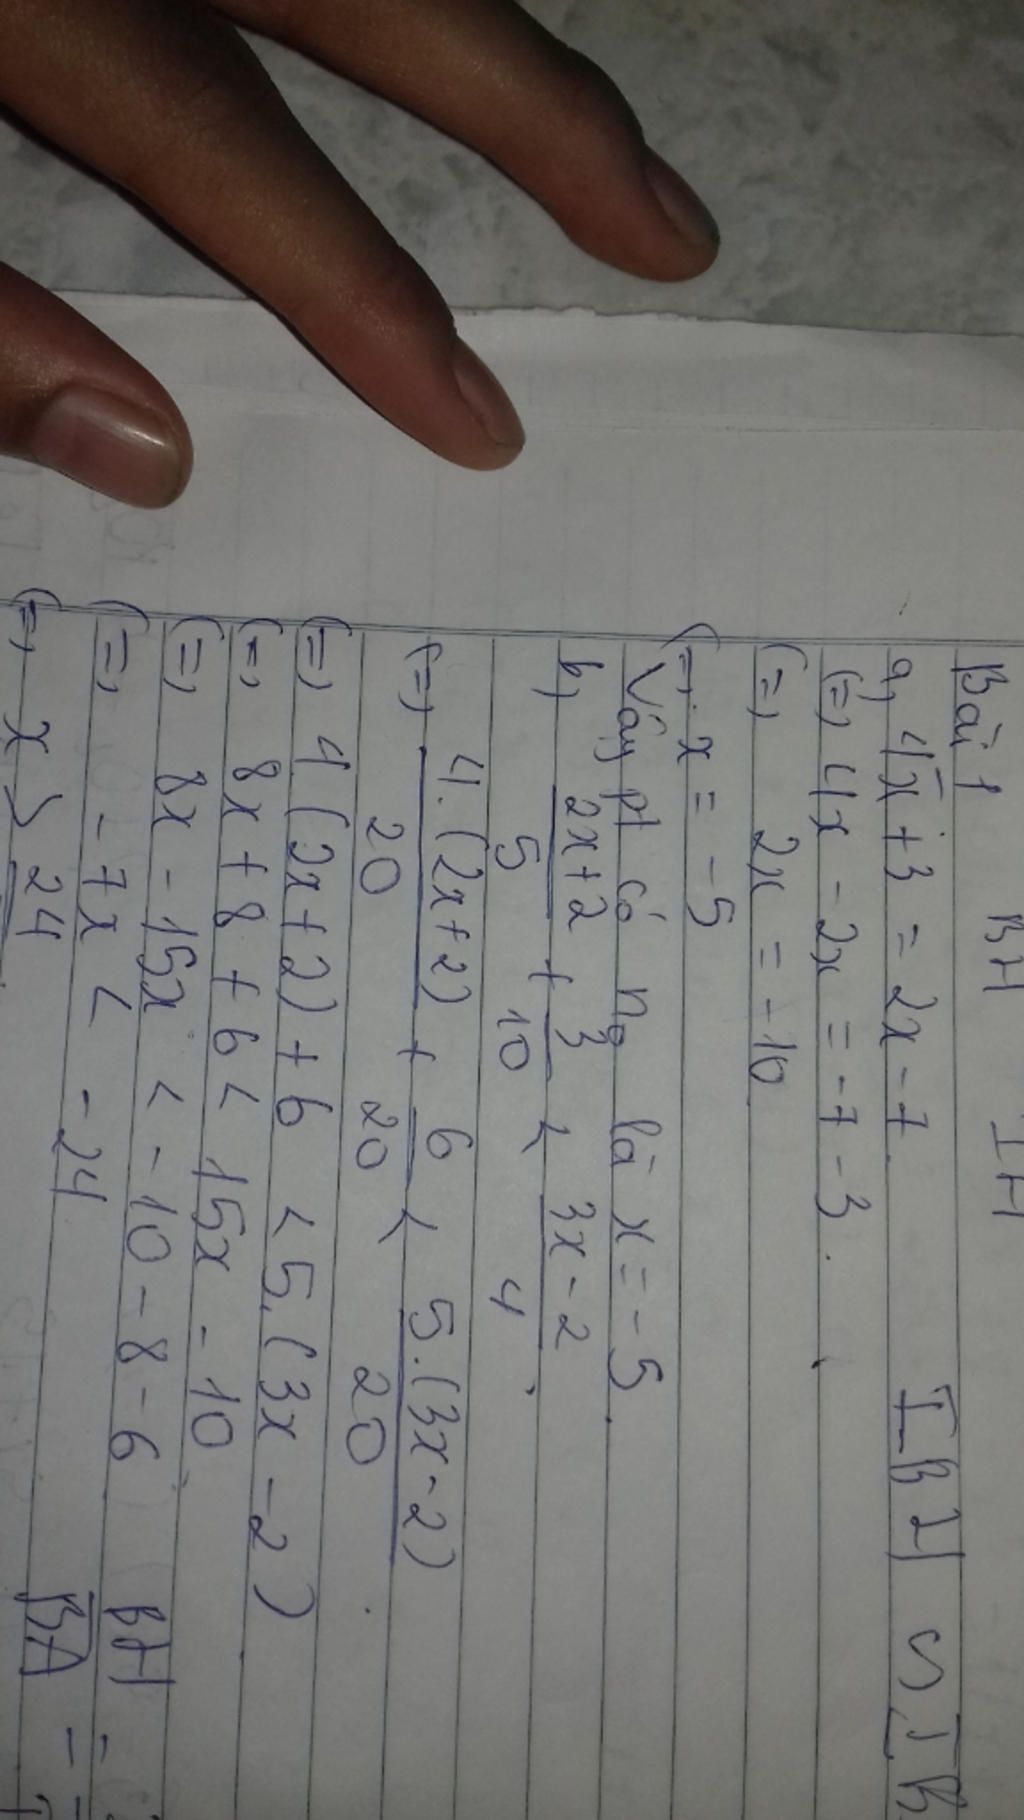 BH IH
Bài 1
IBH ∽ IB
a, 4x + 3 = 2x - 7
(=) 4x - 2x = -7 - 3.
(=) 2x = -10
(=) x = -5
Vậy pt có no là x = -5.
b, \frac{2x+2}{5} + \frac{3}{10} < \frac{3x-2}{4}
(=) \frac{4.(2x+2)}{20} + \frac{6}{20} < \frac{5.(3x-2)}{20}
(=) 4(2x+2) + 6 < 5.(3x-2)
(=) 8x + 8 + 6 < 15x - 10
(=) 8x - 15x < -10 - 8 - 6
(=) -7x < -24
BH =
BA
(=) x > 24